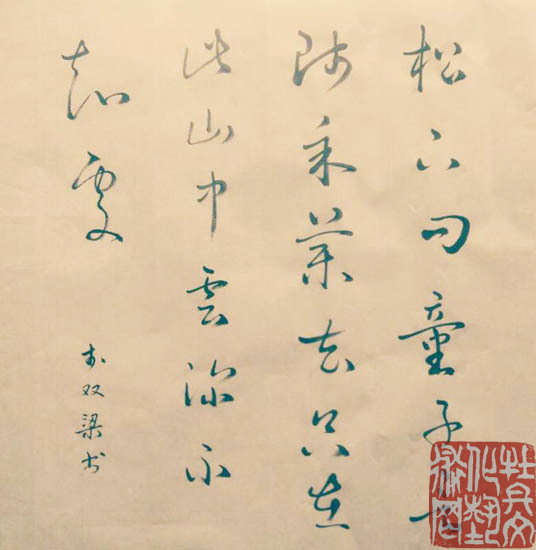 松下问童子言
师采药去只在
此山中雲深不
知處
双梁书